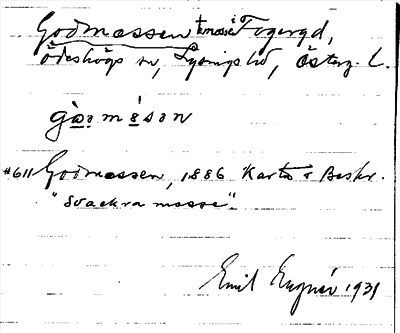 Godmossen mosse i Fogeryd,
Ödeshögs sn, Lysings hd, Österg. l.
gòo mósan
#611 Godmossen, 1886 Karta & Beskr.
"Svackra mosse".
Emil 1931